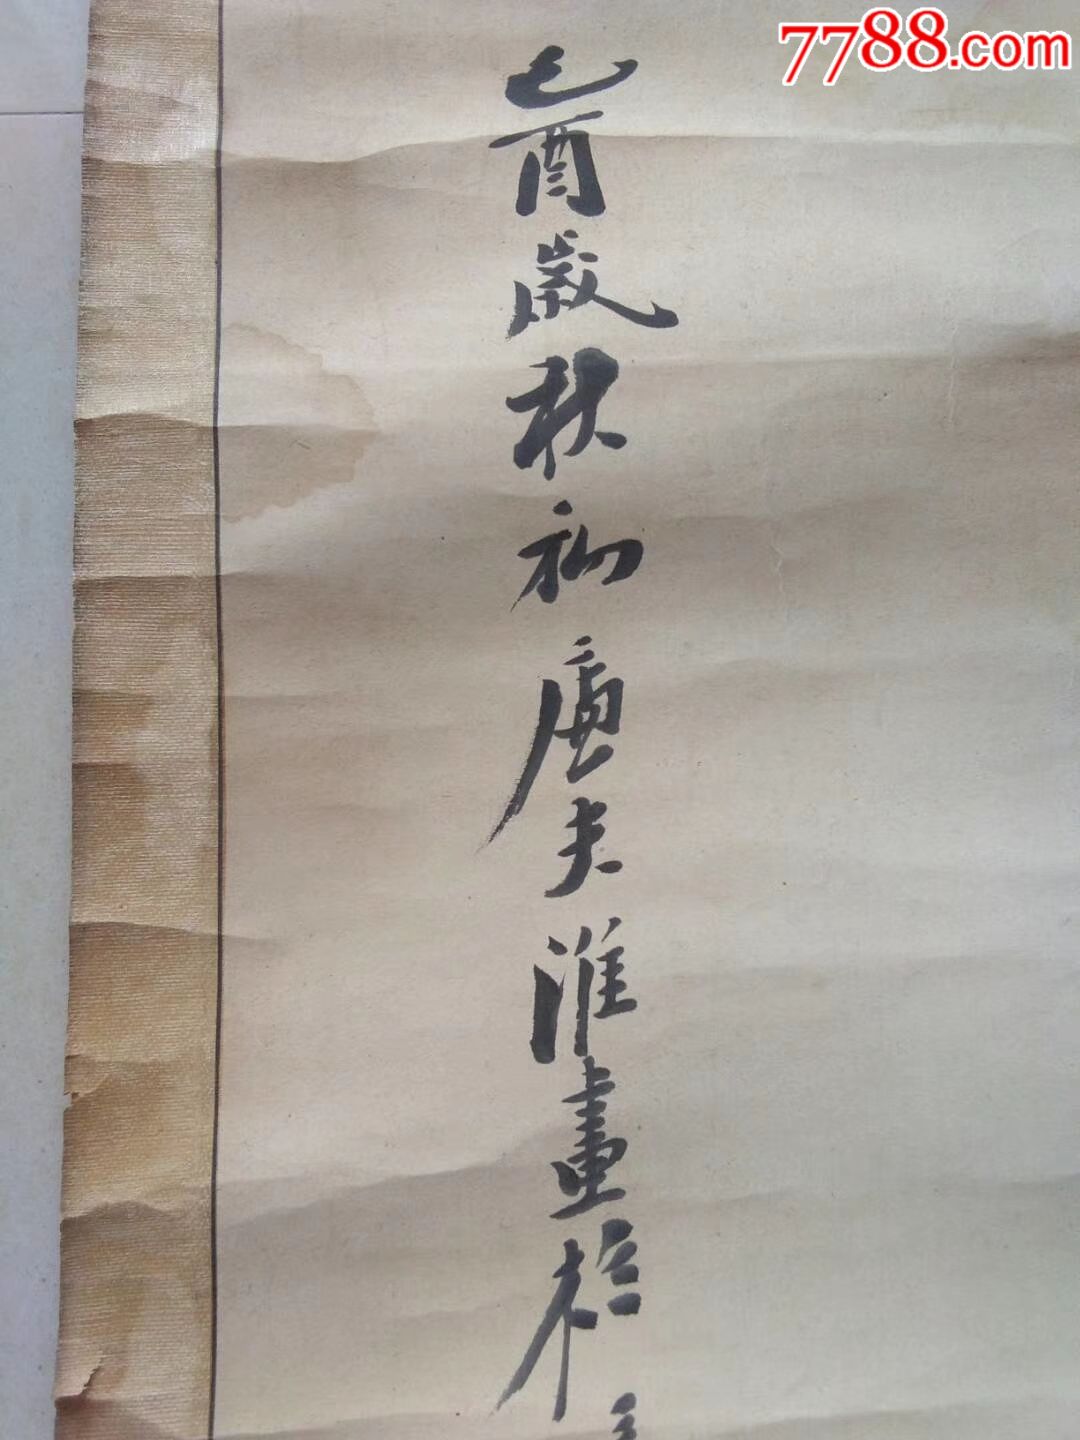 7788.com
乙酉歲秋初廬夫淮畫於